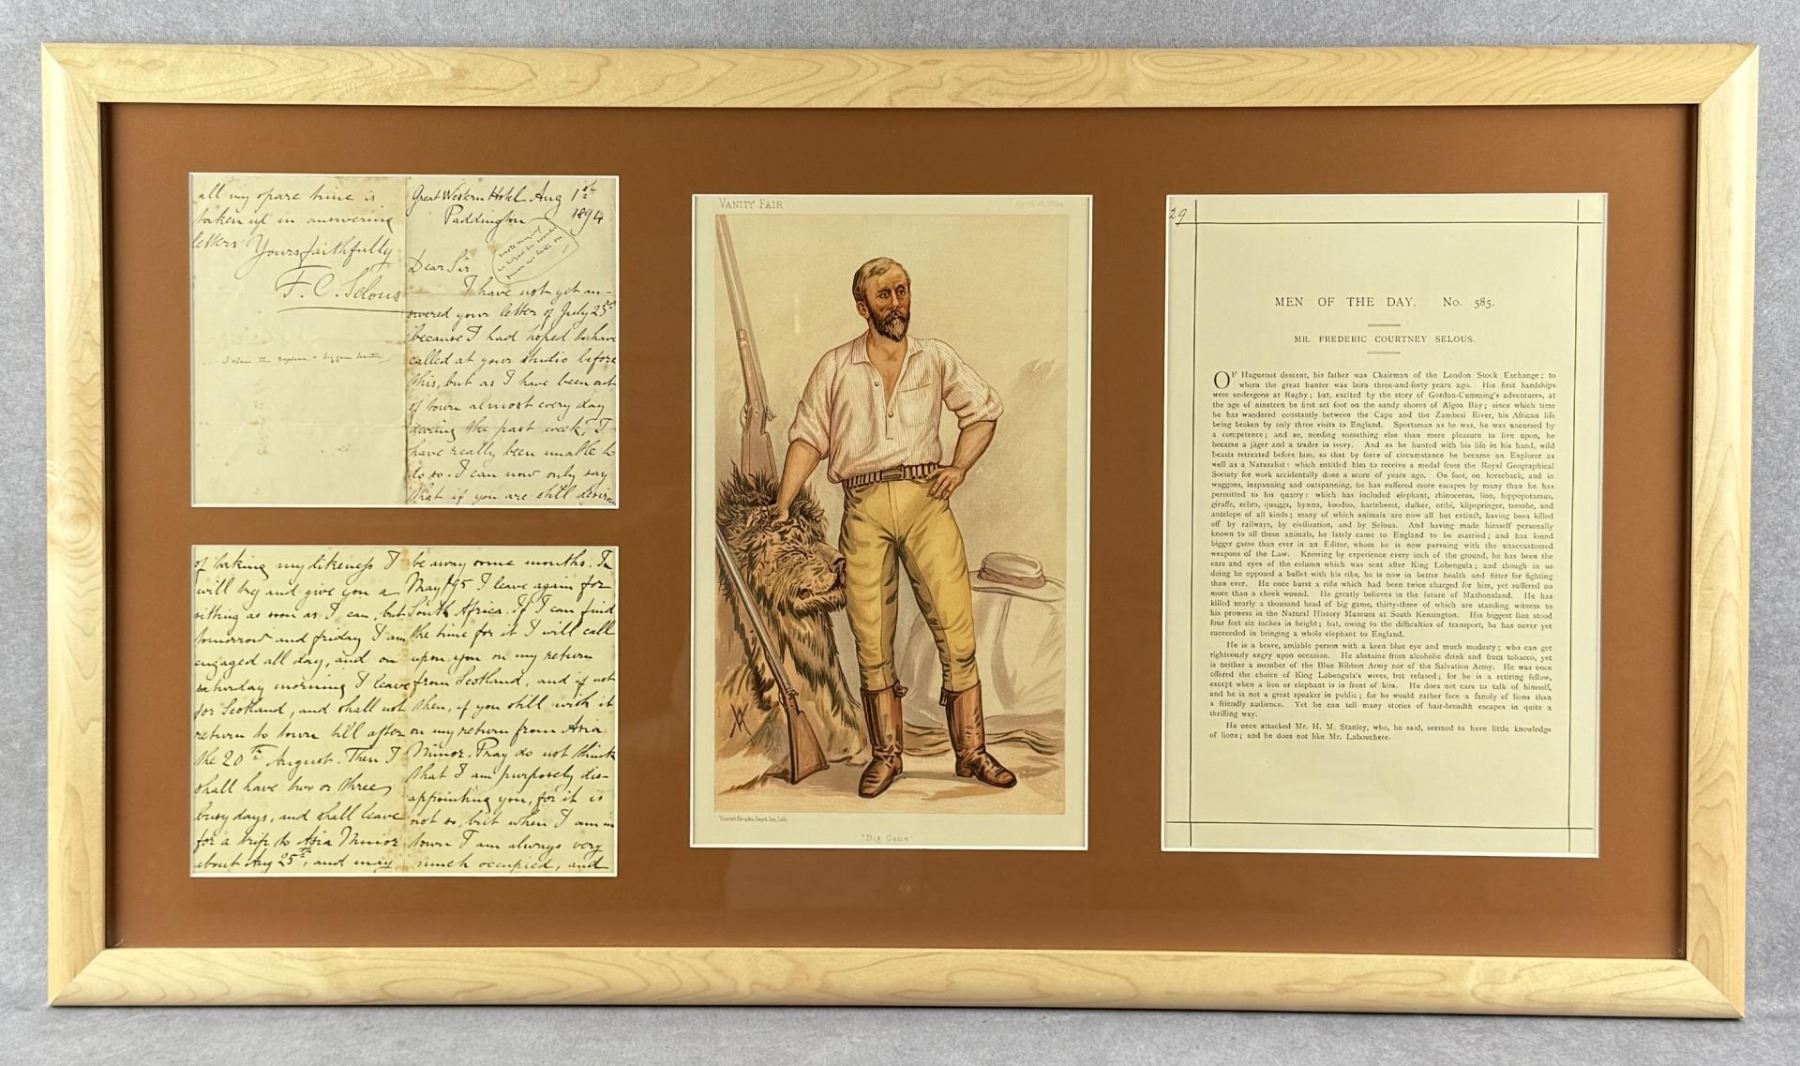 all my spare time is
taken up in answering
letters Yours faithfully
F. C. Selous
Great Western Hotel Aug 1st
Paddington 1894
Dear Sir
I have not yet an-
swered your letter of July 25th
because I had hoped to have
called at your studio before
this, but as I have been out
of town almost every day
during the past week, I
have really been unable to
do so. I can now only say
that if you are still desirous
of taking my likeness I
will try and give you a
sitting as soon as I can, but
tomorrow and friday I am
engaged all day, and on
saturday morning I leave
for Scotland, and shall not
return to town till after
the 20th August. Then I
shall have two or three
busy days, and shall leave
for a trip to Asia Minor
about Aug 25th, and may
be away some months. In
May /95 I leave again for
South Africa. If I can find
the time for it I will call
upon you on my return
from Scotland, and if not
then, if you still wish it
on my return from Asia
Minor. Pray do not think
that I am purposely dis-
appointing you, for it is
not so, but when I am in
town I am always very
much occupied, and
VANITY FAIR
Vincent Brooks, Day & Son, Lith.
"Big Game"
29
MEN OF THE DAY. No. 585.
MR. FREDERIC COURTNEY SELOUS.
OF Huguenot descent, his father was Chairman of the London Stock Exchange; to
whom the great hunter was born three-and-forty years ago. His first hardships
were undergone at Rugby; but, excited by the story of Gordon-Cumming's adventures, at
the age of nineteen he first set foot on the sandy shores of Algoa Bay; since which time
he has wandered constantly between the Cape and the Zambesi River, his African life
being broken by only three visits to England. Sportsman as he was, he was uncursed by
a competence; and so, needing something else than mere pleasure to live upon, he
became a jäger and a trader in ivory. And as he hunted with his life in his hand, wild
beasts retreated before him, so that by force of circumstance he became an Explorer as
well as a Naturalist: which entitled him to receive a medal from the Royal Geographical
Society for work accidentally done a score of years ago. On foot, on horseback, and in
waggons, inspanning and outspanning, he has suffered more escapes by many than he has
permitted to his quarry: which has included elephant, rhinoceros, lion, hippopotamus,
giraffe, zebra, quagga, hyæna, koodoo, hartebeest, duiker, oribi, klipspringer, tsessbe, and
antelope of all kinds; many of which animals are now all but extinct, having been killed
off by railways, by civilisation, and by Selous. And having made himself personally
known to all these animals, he lately came to England to be married; and has found
bigger game than ever in an Editor, whom he is now pursuing with the unaccustomed
weapons of the Law. Knowing by experience every inch of the ground, he has been the
ears and eyes of the column which was sent after King Lobengula; and though in so
doing he opposed a bullet with his ribs, he is now in better health and fitter for fighting
than ever. He once burst a rifle which had been twice charged for him, yet suffered no
more than a cheek wound. He greatly believes in the future of Mashonaland. He has
killed nearly a thousand head of big game, thirty-three of which are standing witness to
his prowess in the Natural History Museum at South Kensington. His biggest lion stood
four feet six inches in height; but, owing to the difficulties of transport, he has never yet
succeeded in bringing a whole elephant to England.
He is a brave, amiable person with a keen blue eye and much modesty; who can get
righteously angry upon occasion. He abstains from alcoholic drink and from tobacco, yet
is neither a member of the Blue Ribbon Army nor of the Salvation Army. He was once
offered the choice of King Lobengula's wives, but refused; for he is a retiring fellow,
except when a lion or elephant is in front of him. He does not care to talk of himself,
and he is not a great speaker in public; for he would rather face a family of lions than
a friendly audience. Yet he can tell many stories of hair-breadth escapes in quite a
thrilling way.
He once attacked Mr. H. M. Stanley, who, he said, seemed to have little knowledge
of lions; and he does not like Mr. Labouchere.